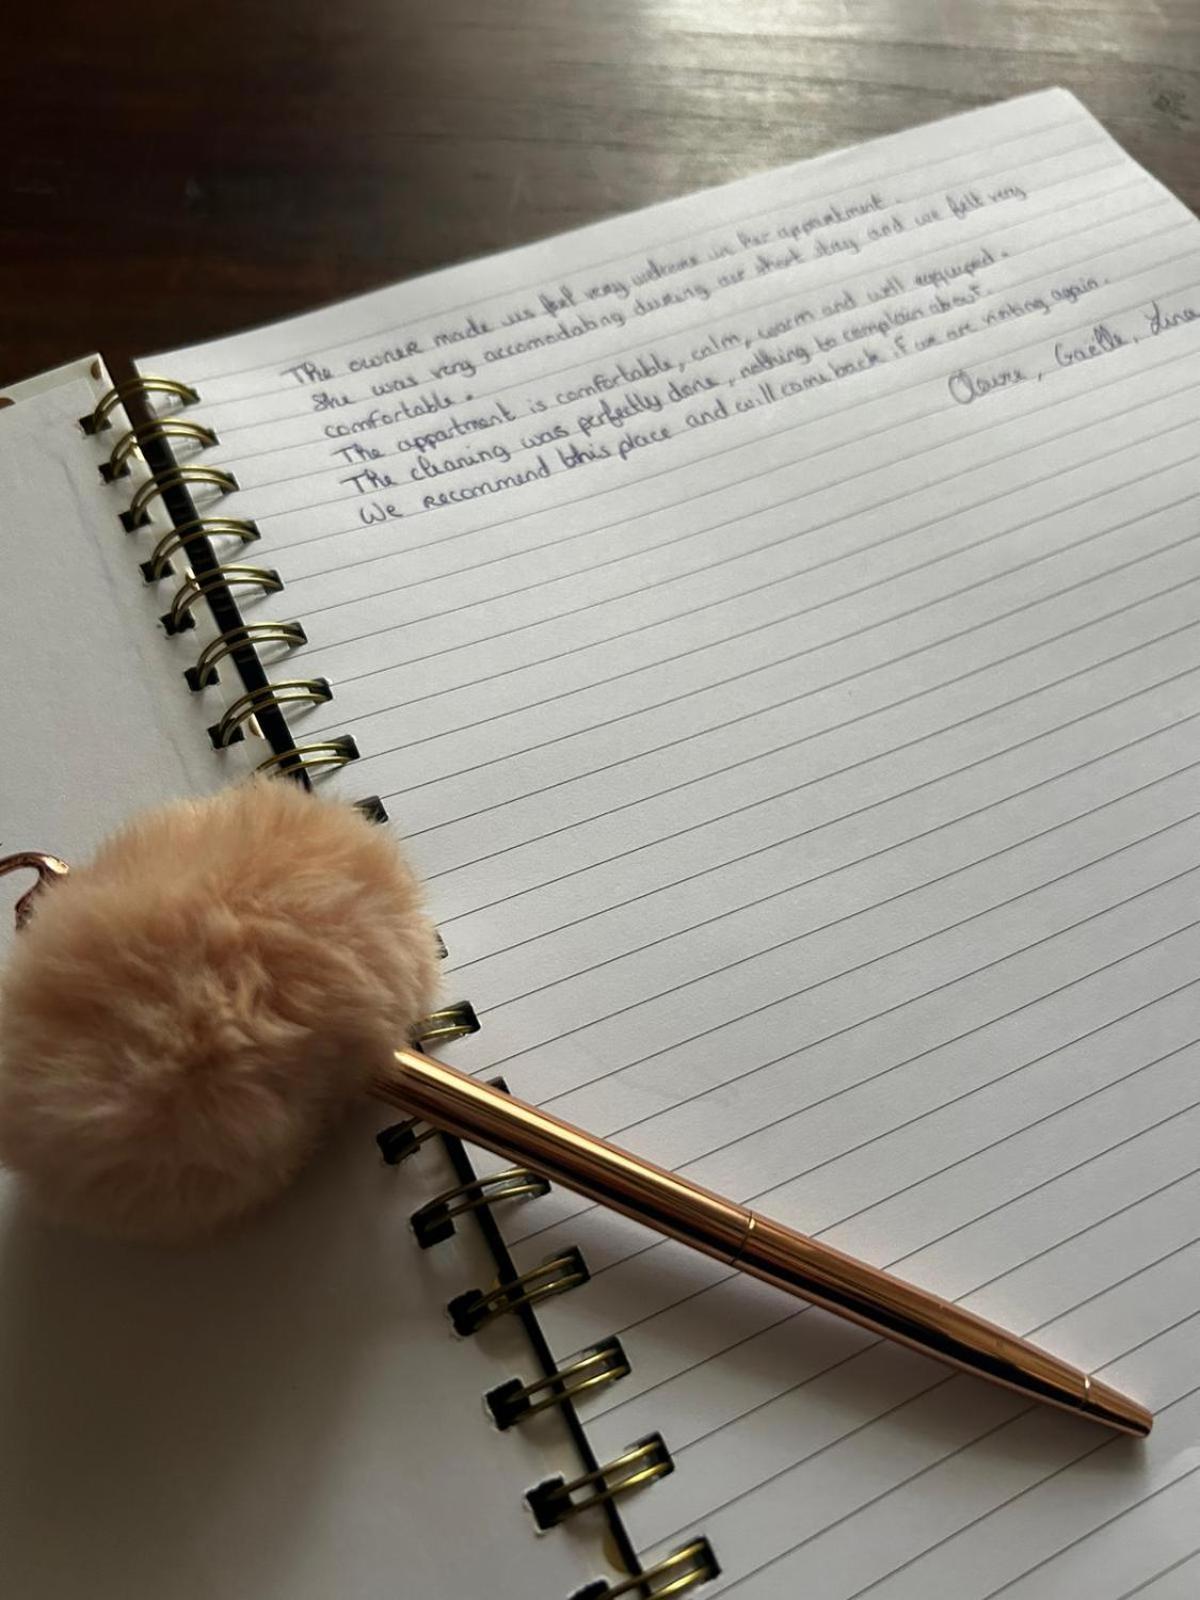 The owner made us feel very welcome in her appartment.
She was very accomodating during our short stay and we felt very
comfortable.
The appartment is comfortable, calm, warm and well equipped.
The cleaning was perfectly done, nothing to complain about.
We recommend this place and will come back if we are visiting again.
Claire, Gaëlle, Lina